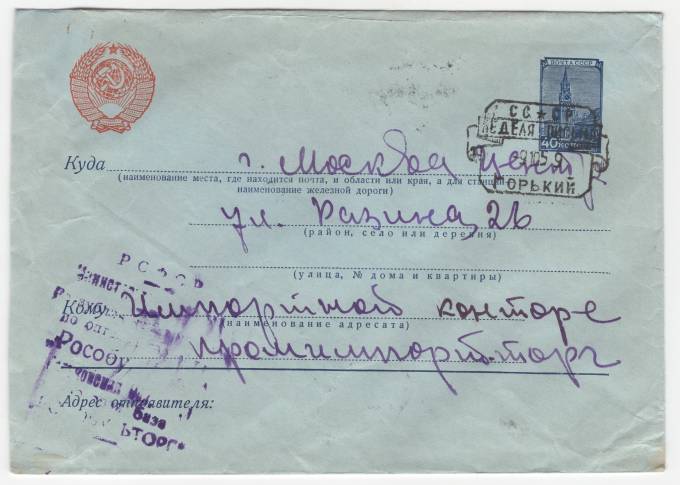 ПОЧТА СССР
СС★СР
НЕДЕЛЯ ПИСЬМА
40 КОП
9.10.5 9
ГОРЬКИЙ
Куда г. Москва Центр
(наименование места, где находится почта, и области или края, а для станции
наименование железной дороги)
ул. Разина 26
(район, село или деревня)
(улица, № дома и квартиры)
РСФСР
Кому Импортной конторе
(наименование адресата)
по
Рособу
Промимпортторг
база
Адрес отправителя:
ЬТОРГ"